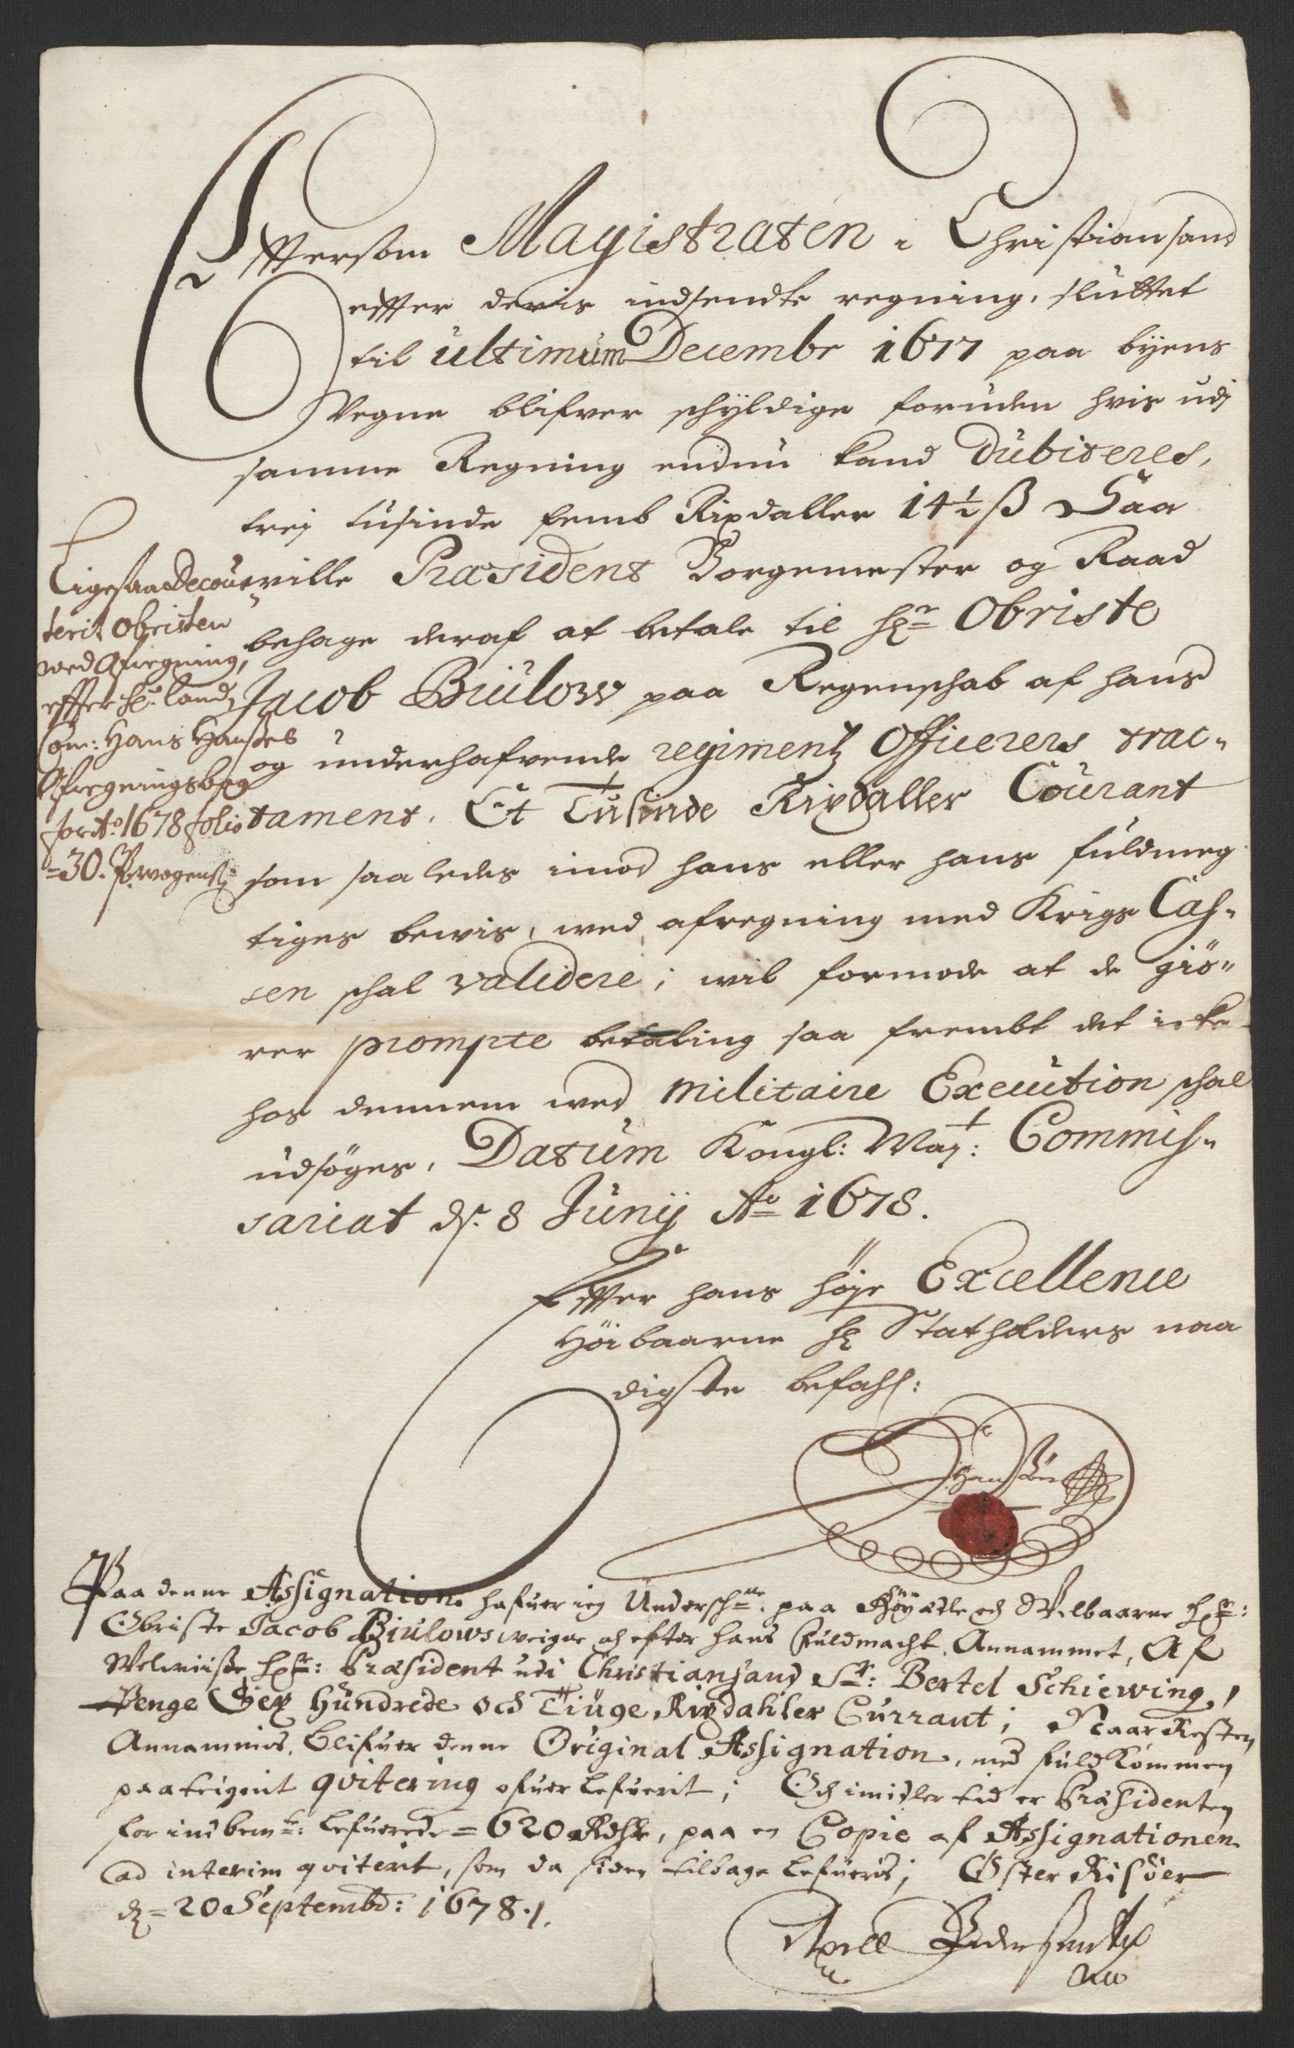 Efftersom Magistraten i Christiansand
effter deris indsendte regning, sluttet
til ultimum Decembr 1677 paa byens
Vegne blifver schyldige foruden hvis udj
samme Regning endnu kand dubiteres,
trej tusinde femb Rixdaller 14½ ß Saa
ville Præsident Borgemester og Raad
behage deraf at betale til Hr Obriste
Jacob Biülow paa Regenschab af hans
og underhafvende regimentz Officerers trac-
tament. Et Tusinde Rixdaller Courant
som saaledes imod hans eller hans fuldmeg
tiges bewis, wed afregning med Krigs Cas-
sen schal validere; wil formode at de giö-
rer prompte betaling saa frembt det icke
hos dennem wed Militaire Execution schal
udsöges, Datum Kongl: May: Commis-
sariat ds. 8 Junij Ao 1678.
Effter hans höje Excellence
Höibaarne Hr Statholders naa
digste befahl:
Ligesaa Decour
terit Obristen
wed Afregning,
effter Hr. Land
Com: Hans Hanßes
Afregningsbog
for Ao 1678 folio
=30.
Paa denne Assignation hafuer ieg Undersch. paa Höyædle och Welbaarne Hr:
Obriste Jacob Biulows weigne och efter hans Fuldmacht, Annammet, Af
Welwiise Hr: Præsident udi Christiansand Sr: Bertel Schiewing,
Penge Sex Hundrede och Tiuge Rixdahler Currant; Naar Resten
Annammis, blifuer denne Original Assignation, med fuldkommen
paateigent qvitering ofuer lefuerit; Och imidler tid er Præsidenten
for indbem: lefuerede = 620 Rdlr, paa en Copie af Assignationen
ad interim qviterit, som da siden tilbage lefueris; Öster Risöer
dz = 20 Septembr: 1678.
Axell Pedersen